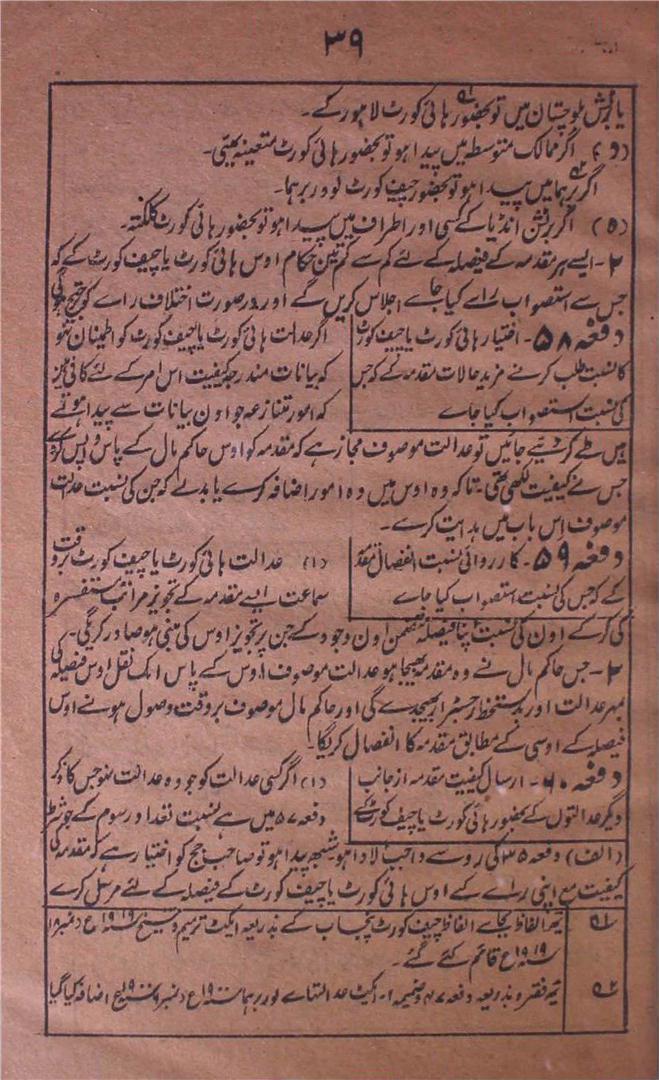 ۳۹
یا برٹش بلوچستان میں تو بحضور ہائی کورٹ لاہور کے۔
(د) اگر ممالک متوسط میں پیدا ہو تو بحضور ہائی کورٹ متعینہ بمبئی۔
اگر برہما میں پیدا ہو تو بحضور چیف کورٹ لوور برہما۔
(ہ) اگر برٹش انڈیا کے کسی اور اطراف میں پیدا ہو تو بحضور ہائی کورٹ کلکتہ۔
۲- ایسے ہر مقدمہ کے فیصلہ کے لئے کم سے کم تین حکام اوس ہائی کورٹ یا چیف کورٹ کے کہ
جس سے استصواب راے کیا جاے اجلاس کریں گے اور درصورت اختلاف راے کو
دفعہ ۵۸- اختیار ہائی کورٹ یا چیف کورٹ
کا نسبت طلب کرنے مزید حالات مقدمہ کے کہ جس
کی نسبت استصواب کیا جاے
اگر عدالت ہائی کورٹ یا چیف کورٹ کو اطمینان نہو
کہ بیانات مندرجہ کیفیت اس امر کے لئے کافی ہیں
کہ امور تنازعہ جو اون بیانات سے پیدا ہوتے
ہیں طے کر دئیے جائیں تو عدالت موصوف مجاز ہے کہ مقدمہ کو اوس حاکم مال کے پاس واپس کردے
جس نے کیفیت لکھی تھی تاکہ وہ اوس میں وہ امور اضافہ کرے یا بدلے کہ جن کی نسبت عدالت
موصوف اس باب میں ہدایت کرے۔
دفعہ ۵۹- کارروائی نسبت انفصال مقدمہ
کے کہ جس کی نسبت استصواب کیا جاے
(۱) عدالت ہائی کورٹ یا چیف کورٹ بروقت
سماعت ایسے مقدمہ کے تجویز مراتب مستفسرہ
کی کرکے اون کی نسبت اپنا فیصلہ متضمن اون وجوہ کے جن پر تجویز اوس کی مبنی ہو صادر کریگی۔
۲- جس حاکم مال نے وہ مقدمہ بھیجا ہو عدالت موصوف اوس کے پاس ایک نقل اوس فیصلہ کی
بمہر عدالت اور بدستخط رجسٹرار بھیجدے گی اور حاکم مال موصوف بروقت وصول ہونے اوس
فیصلہ کے اوسی کے مطابق مقدمہ کا انفصال کریگا۔
دفعہ ۶۰- ارسال کیفیت مقدمہ از جانب
دیگر عدالتوں کے بحضور ہائی کورٹ یا چیف کورٹ کے
(۱) اگر کسی عدالت کو جو وہ عدالت نہو جس کا ذکر
دفعہ ۵۷ میں ہے نسبت تعداد رسوم کے جو شرط
(الف) دفعہ ۳۵ کی رو سے واجب الادا ہو شبھہ پیدا ہو تو صاحب جج کو اختیار ہے کہ مقدمہ کی
کیفیت مع اپنی راے کے اوس ہائی کورٹ یا چیف کورٹ کے فیصلہ کے لئے مرسل کرے
۱؎ یہ الفاظ بجاے الفاظ چیف کورٹ پنجاب کے بذریعہ ایکٹ ترمیم و تنسیخ ۱۹۱۹ع
۱۹۱۹ع قائم کئے گئے۔
۲؎ یہ فقرہ بذریعہ دفعہ ۴۷ و ضمیمہ ۱- ایکٹ عدالتہاے لوور برہما ۱۹۰۰ع اضافہ کیا گیا